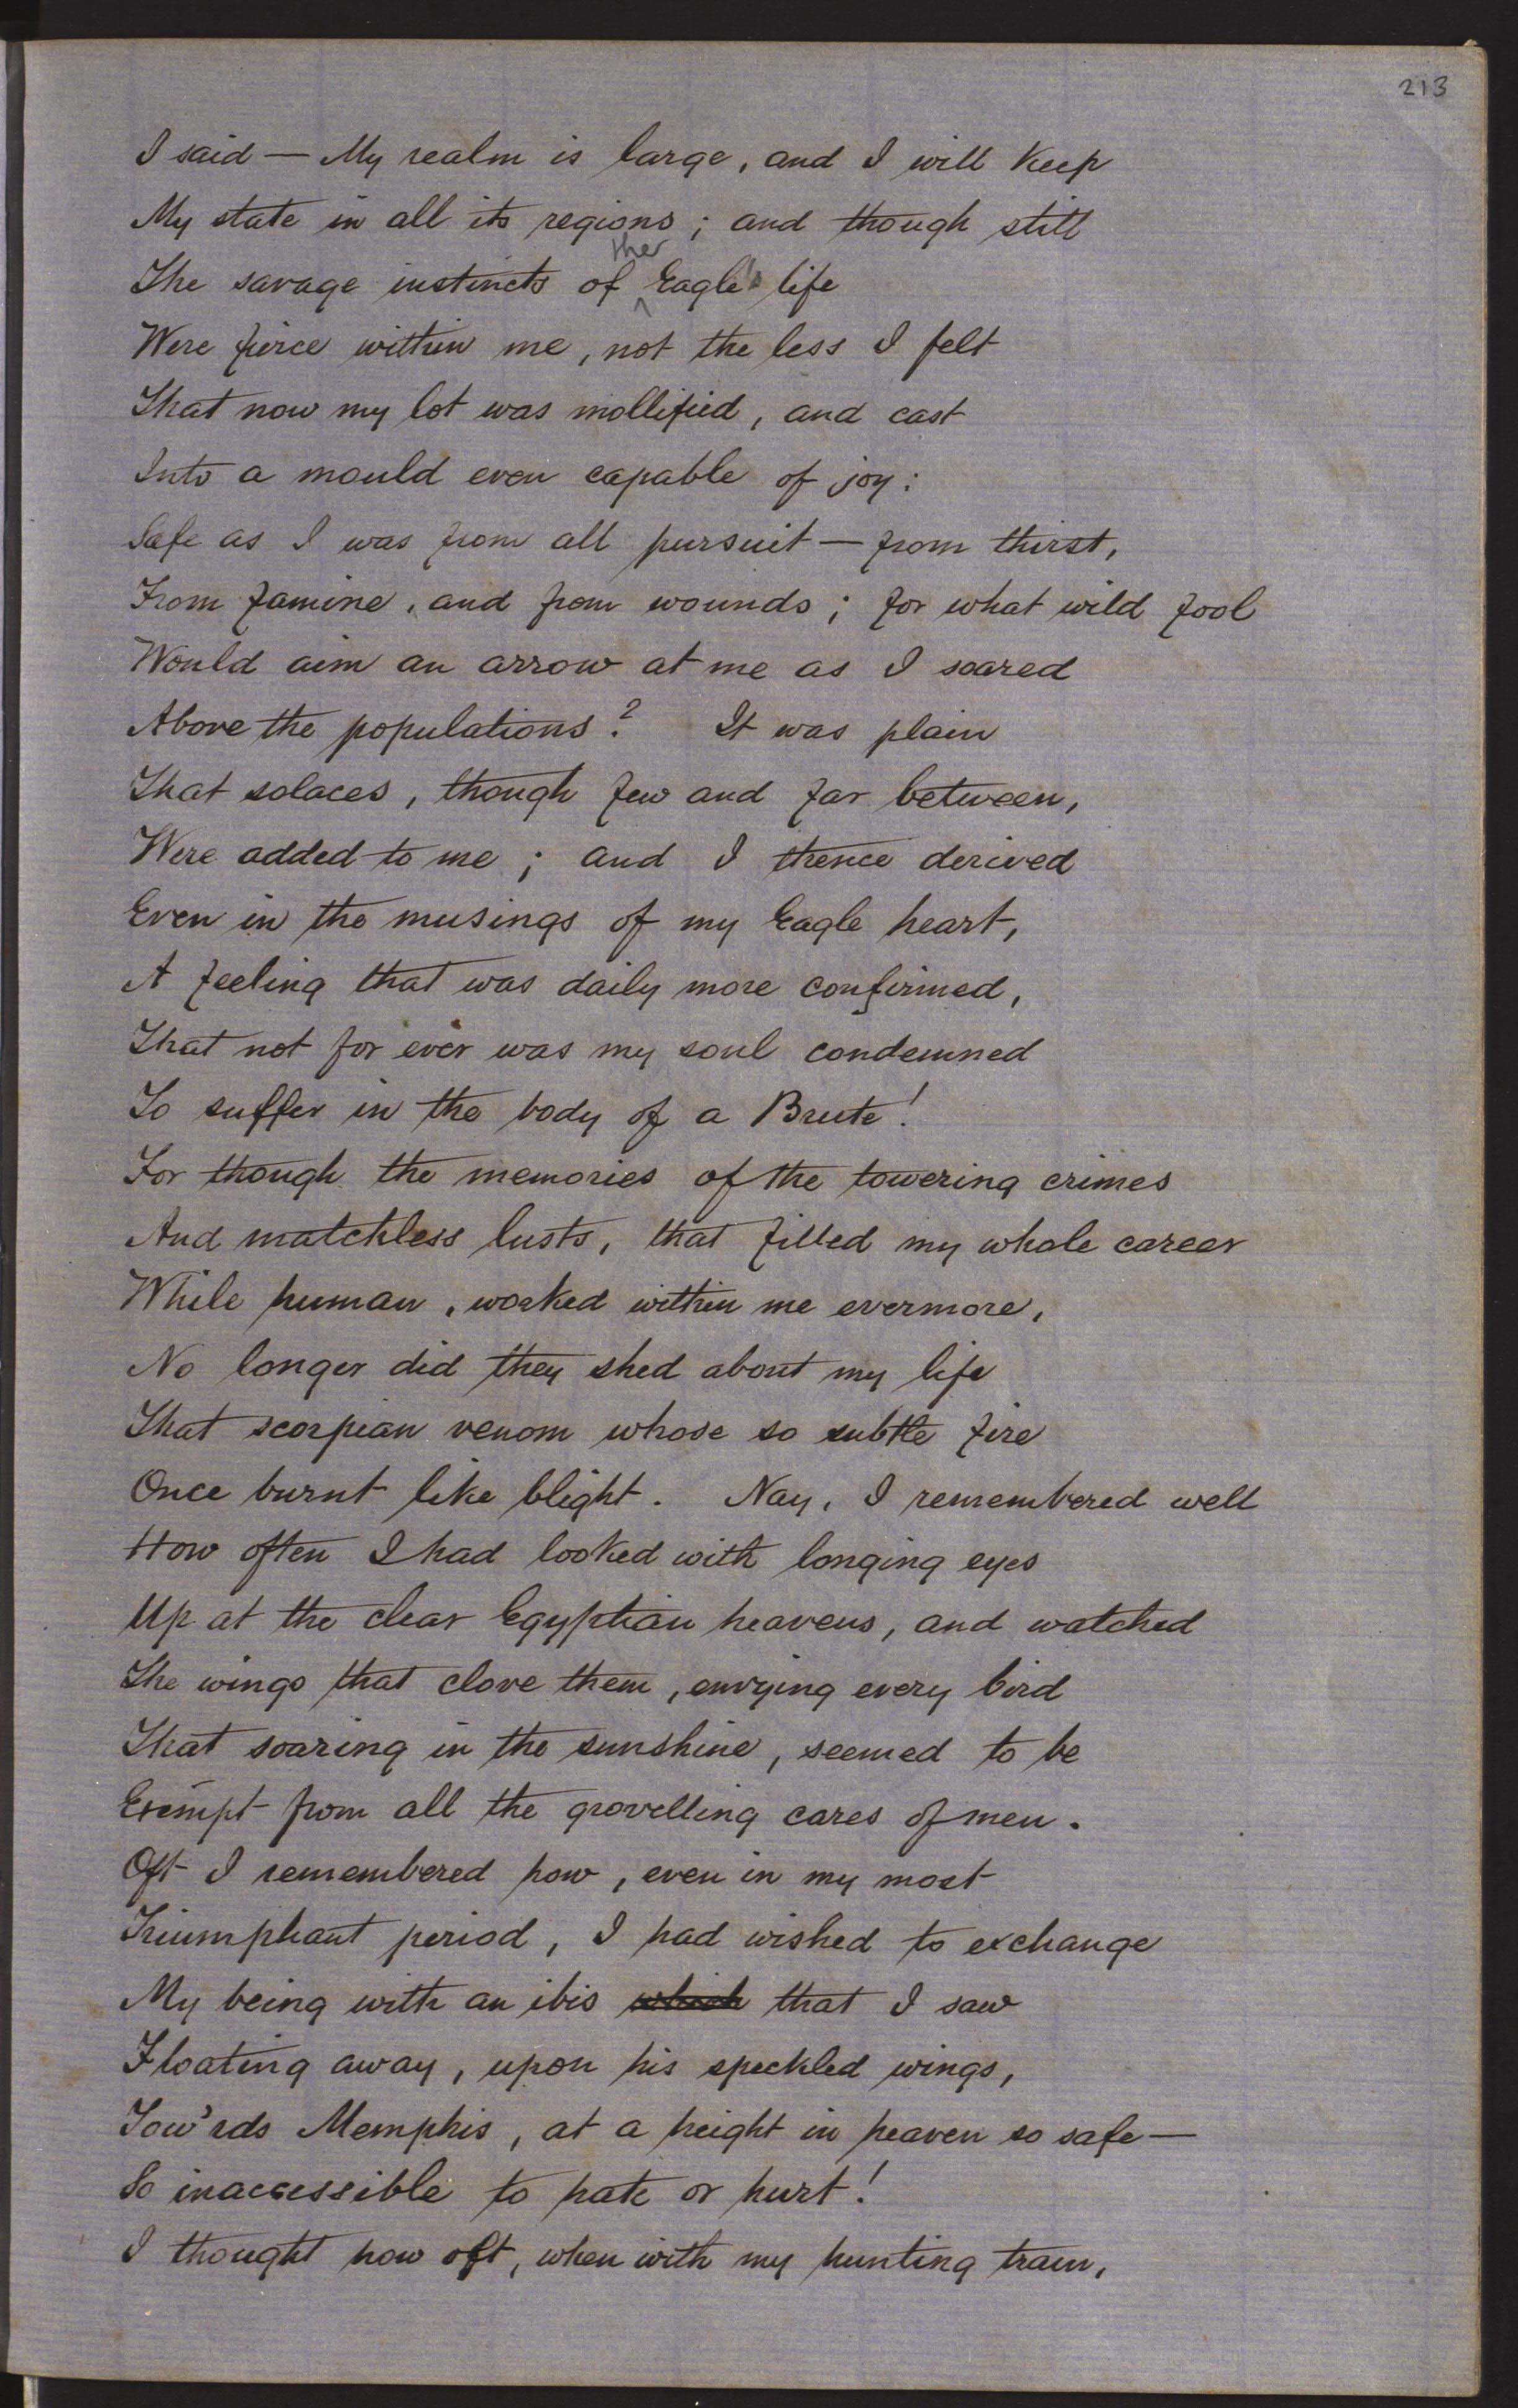 213
I said — My realm is large, and I will keep
My state in all its regions; and though still
the
The savage instincts of Eagle's life
Were fierce within me, not the less I felt
That now my lot was mollified, and cast
Into a mould even capable of joy:
Safe as I was from all pursuit — from thirst,
From famine, and from wounds; for what wild fool
Would aim an arrow at me as I soared
Above the populations? It was plain
That solaces, though few and far between,
Were added to me; and I thence derived
Even in the musings of my Eagle heart,
A feeling that was daily more confirmed,
That not for ever was my soul condemned
To suffer in the body of a Brute!
For though the memories of the towering crimes
And matchless lusts, that filled my whole career
While human, worked within me evermore,
No longer did they shed about my life
That scorpion venom whose so subtle fire
Once burnt like blight. Nay, I remembered well
How often I had looked with longing eyes
Up at the clear Egyptian heavens, and watched
The wings that clove them, envying every bird
That soaring in the sunshine, seemed to be
Exempt from all the grovelling cares of men.
Oft I remembered how, even in my most
Triumphant period, I had wished to exchange
My being with an ibis which that I saw
Floating away, upon his speckled wings,
Tow'rds Memphis, at a height in heaven so safe —
So inaccessible to hate or hurt!
I thought how oft, when with my hunting train,